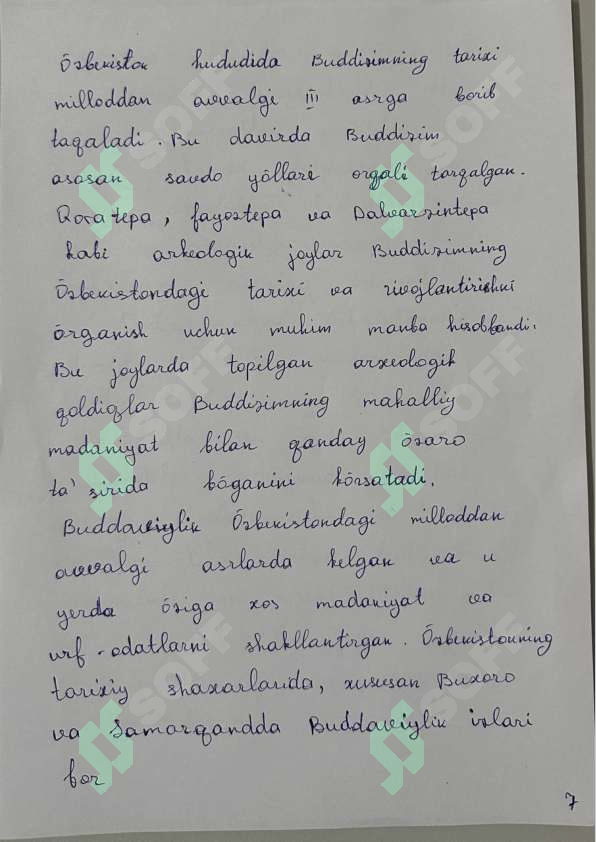 Özbekiston hududida Buddizimning tarixi
milloddan avvalgi III asrga borib
taqaladi. Bu davirda Buddizim
asosan savdo yöllari orqali tarqalgan.
Qoratepa, fayoztepa va Dalvarzintepa
kabi arkeologik joylar Buddizimning
Özbekistondagi tarixi va rivojlantirishni
örganish uchun muhim manba hisoblandi.
Bu joylarda topilgan arxeologik
qoldiqlar Buddizimning mahalliy
madaniyat bilan qanday özaro
ta'sirida böganini körsatadi.
Buddaviylik Özbekistondagi milloddan
avvalgi asrlarda kelgan va u
yerda öziga xos madaniyat va
urf-odatlarni shakllantirgan. Özbekistonning
tarixiy shaxarlarida, xususan Buxoro
va Samarqandda Buddaviylik izlari
bor
7
SOFF
SOFF
SOFF
SOFF
SOFF
SOFF
SOFF
SOFF